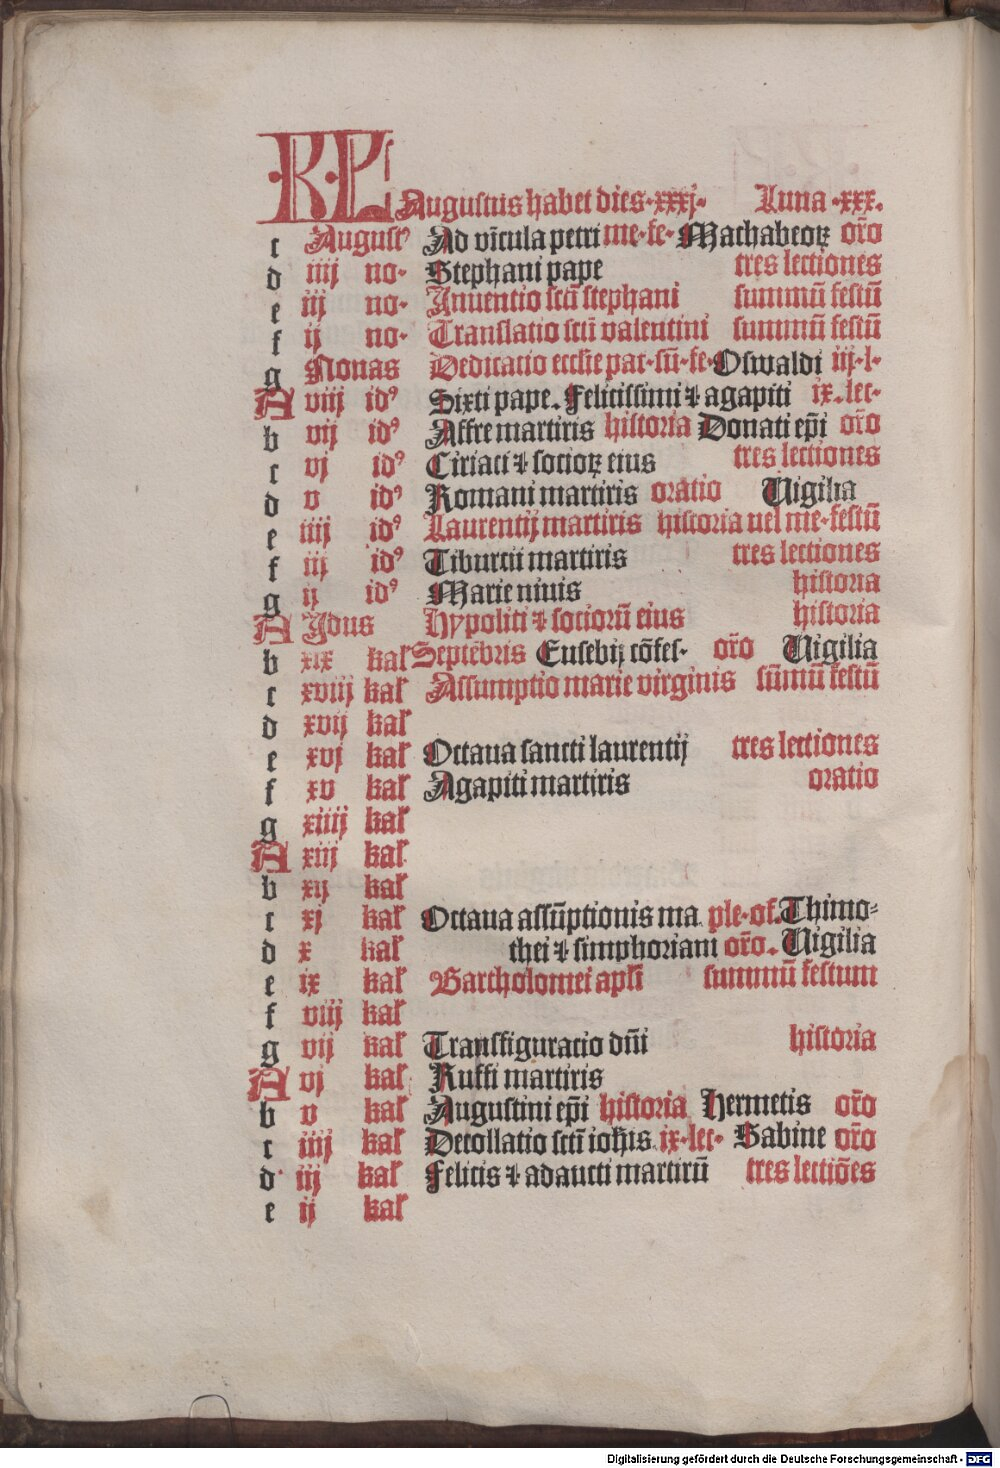 KL Augustus habet dies·xxxj· Luna·xxx.
c Augustꝰ Ad vīcula petri me·fe·Machabeoꝝ oīo
d iiij no· Stephani pape tres lectiones
e iij no· Inuentio sctī stephani summū festū
f ij no· Translatio sctī valentini summū festū
g Nonas Dedicatio ecclie pat·sū·fe·Oswaldi iij·l·
A viij idꝰ Sixti pape. Felicissimi ⁊ agapiti ix.lec·
b vij idꝰ Affre martiris historia Donati ep̄i or̄o
c vj idꝰ Ciriaci ⁊ socioꝝ eius tres lectiones
d v idꝰ Romani martiris oratio Uigilia
e iiij idꝰ Laurentij martiris historia uel me·festū
f iij idꝰ Tiburcii martiris tres lectiones
g ij idꝰ Marie niuis historia
A Jdus Hypoliti ⁊ sociorū eius historia
b xix kal Septēbris Eusebij cōfes· or̄o Uigilia
c xviij kal Assumptio marie virginis sūmū festū
d xvij kal
e xvj kal Octaua sancti laurentij tres lectiones
f xv kal Agapiti martiris oratio
g xiiij kal
A xiij kal
b xij kal
c xj kal Octaua assūptionis ma ple·of.Thimo⸗
d x kal thei ⁊ simphoriani or̄o. Uigilia
e ix kal Bartholomei apl̄i summū festum
f viij kal
g vij kal Transfiguracio dn̄i historia
A vj kal Ruffi martiris
b v kal Augustini ep̄i historia Hermetis or̄o
c iiij kal Decollatio sctī ioh̄is ix·lec· Sabine or̄o
d iij kal Felicis ⁊ adaucti martirū tres lectiōes
e ij kal
Digitalisierung gefördert durch die Deutsche Forschungsgemeinschaft - DFG